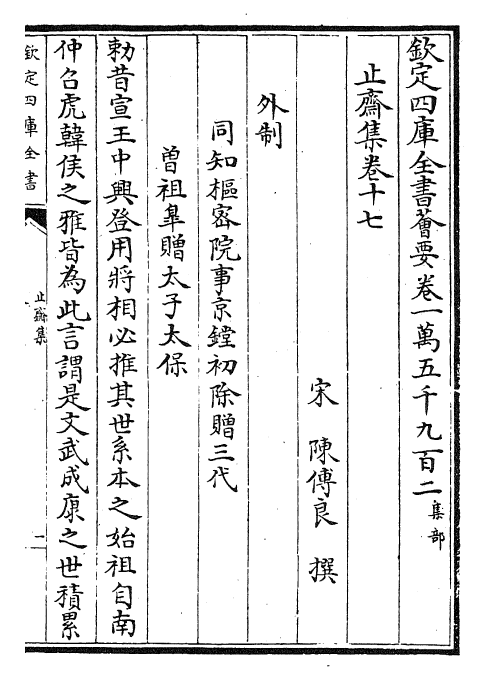 欽定四庫全書薈要卷一萬五千九百二 集部
止齋集卷十七
宋 陳傅良 撰
外制
同知樞密院事京鏜初除贈三代
曽祖臯贈太子太保
勅昔宣王中興登用將相必推其世系本之始祖自南
仲召虎韓侯之雅皆為此言謂是文武成康之世積累
欽定四庫全書
止齋集